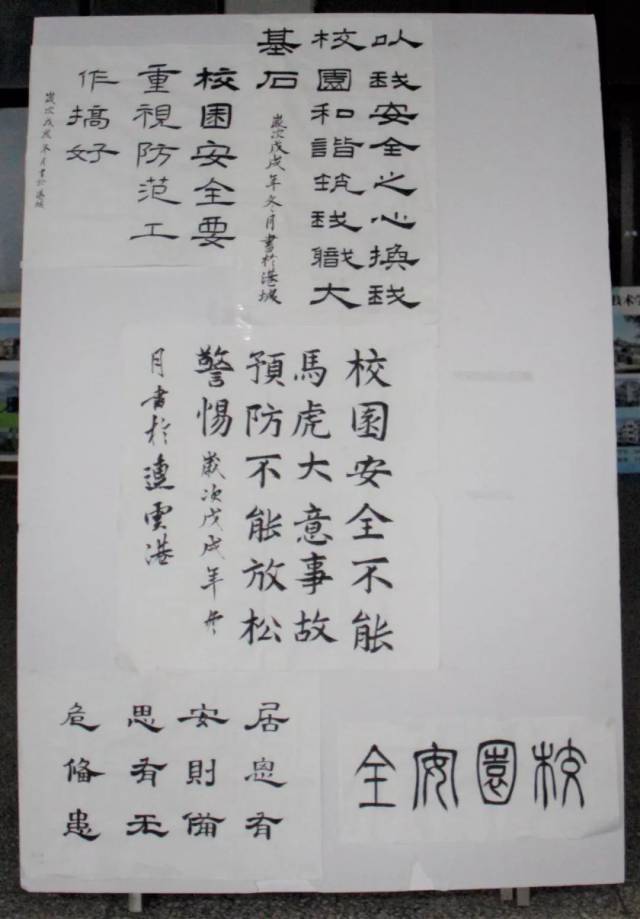 以我安全之心換我
校園和諧筑我職大
基石
歲次戊戌年冬月書於港城
校園安全要
重視防范工
作搞好
歲次戊戌冬月書於港城
校園安全不能
馬虎大意事故
預防不能放松
警惕 歲次戊戌年冬
月書於連雲港
居安思危
思則有備
有備无患
校園安全